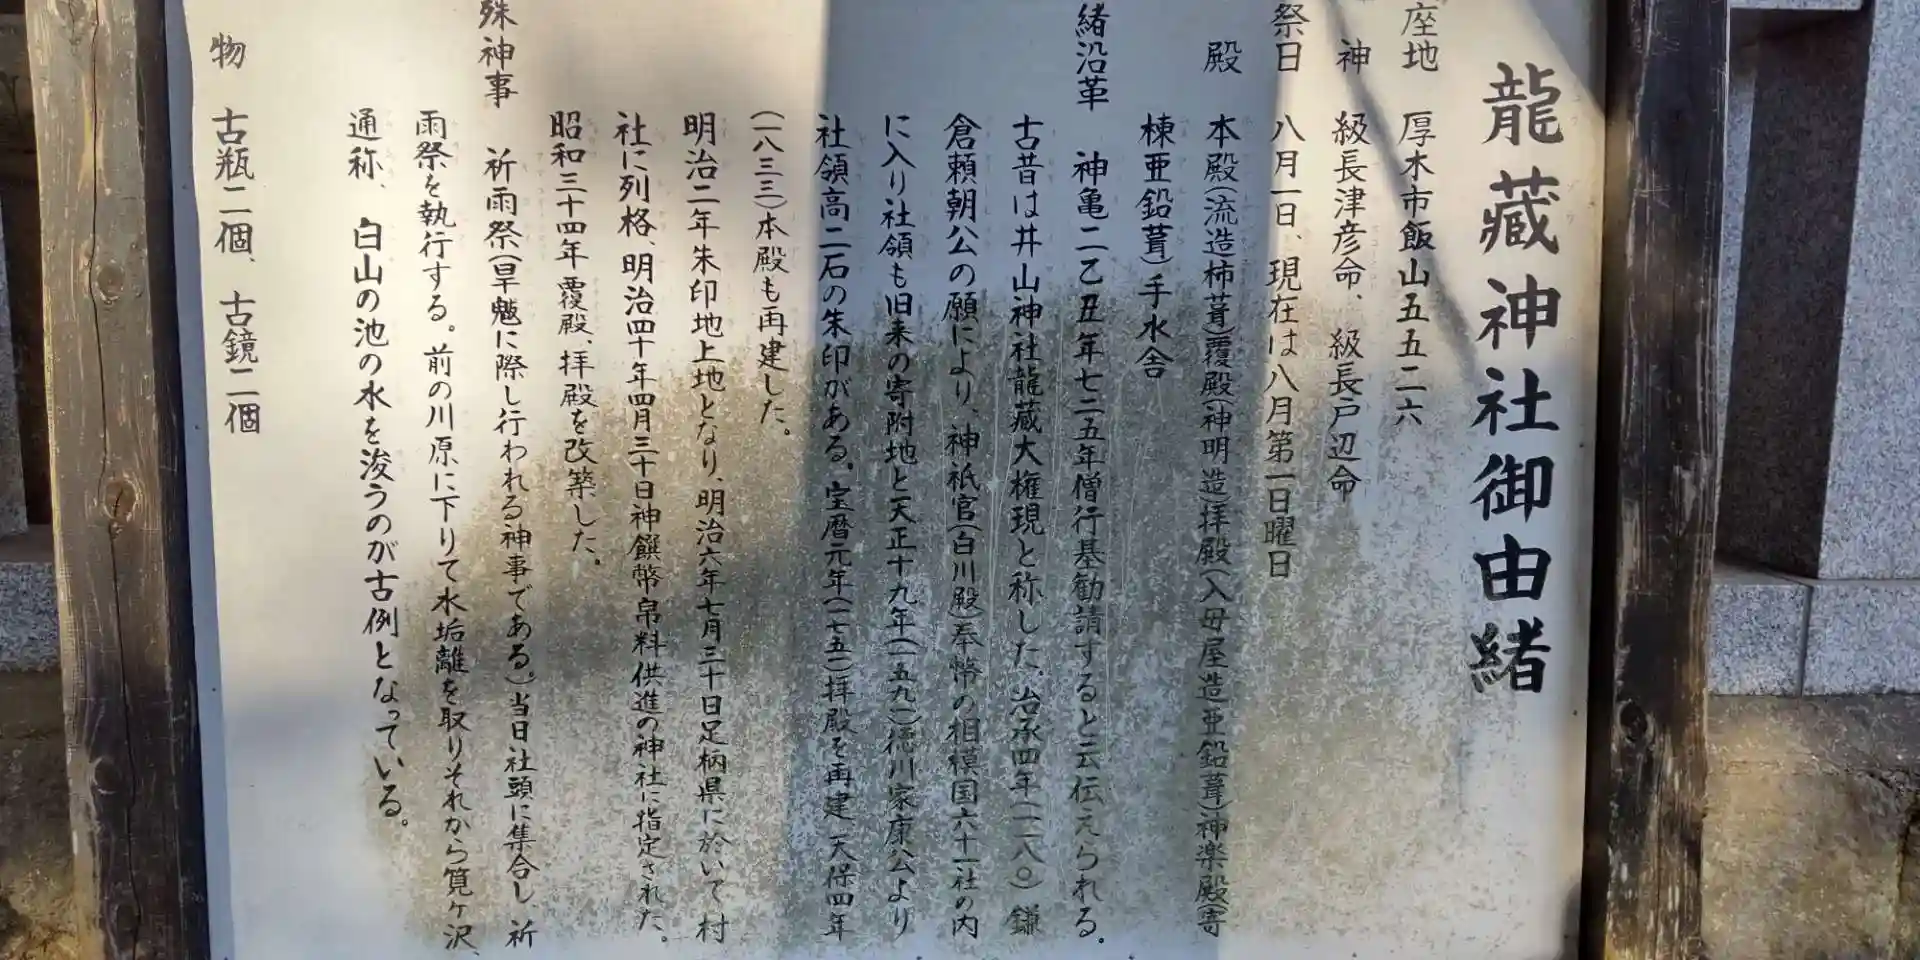 龍藏神社御由緒
座地 厚木市飯山五五二六
神 級長津彦命、級長戸辺命
祭日 八月一日、現在は八月第一日曜日
殿 本殿(流造柿葺)覆殿(神明造)拝殿(入母屋造亜鉛葺)神楽殿(寄
棟亜鉛葺)手水舎
緒沿革 神亀二乙丑年七二五年僧行基勧請すると云伝えられる。
古昔は井山神社龍藏大権現と称した。治承四年(一一八〇)鎌
倉頼朝公の願により、神祇官(白川殿)奉幣の相模国六十一社の内
に入り社領も旧来の寄附地と天正十九年(一五九一)徳川家康公より
社領高二石の朱印がある。宝暦元年(一七五一)拝殿を再建 天保四年
(一八三三)本殿も再建した。
明治二年朱印地上地となり、明治六年七月三十日足柄県に於いて村
社に列格、明治四十年四月三十日神饌幣帛料供進の神社に指定された。
昭和三十四年覆殿、拝殿を改築した。
殊神事 祈雨祭(旱魃に際し行われる神事である。)当日社頭に集合し、祈
雨祭を執行する。前の川原に下りて水垢離を取りそれから筧ヶ沢、
通称、白山の池の水を浚うのが古例となっている。
物 古瓶二個、古鏡二個